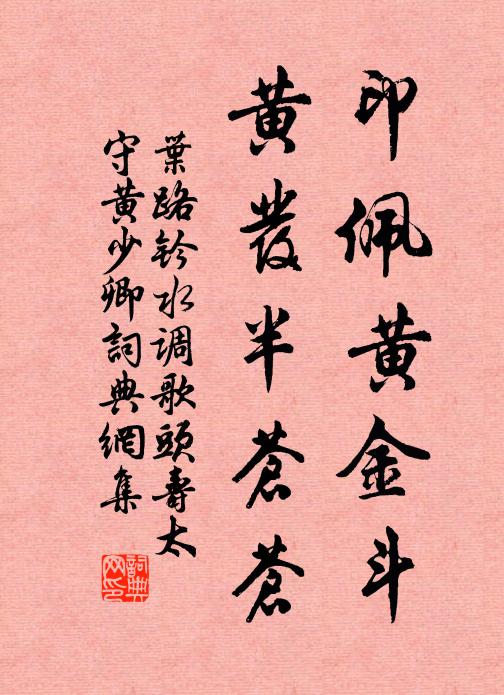 印佩黄金斗
黄發半蒼蒼
葉路鈐水调歌頭壽太
守黄少卿詞典網集
詞典
网印